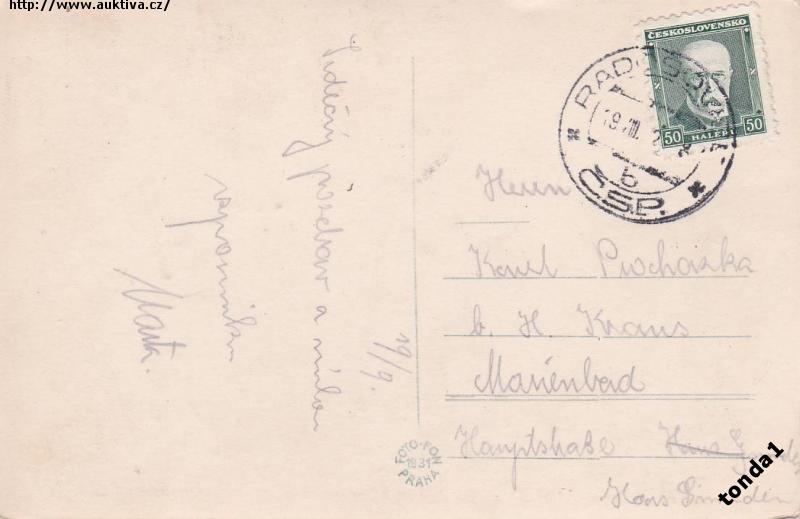 http://www.auktiva.cz/
Srdečný pozdrav a milou
vzpomínku
19/9.
ČESKOSLOVENSKO
50 HALÉŘ 50
19.VIII.
b
ČSP.
Herrn
Karel Prochazka
b. H. Kraus
Marienbad
Hauptstraße Haus
Haus
FOTO-FON
1931
PRAHA
tonda1